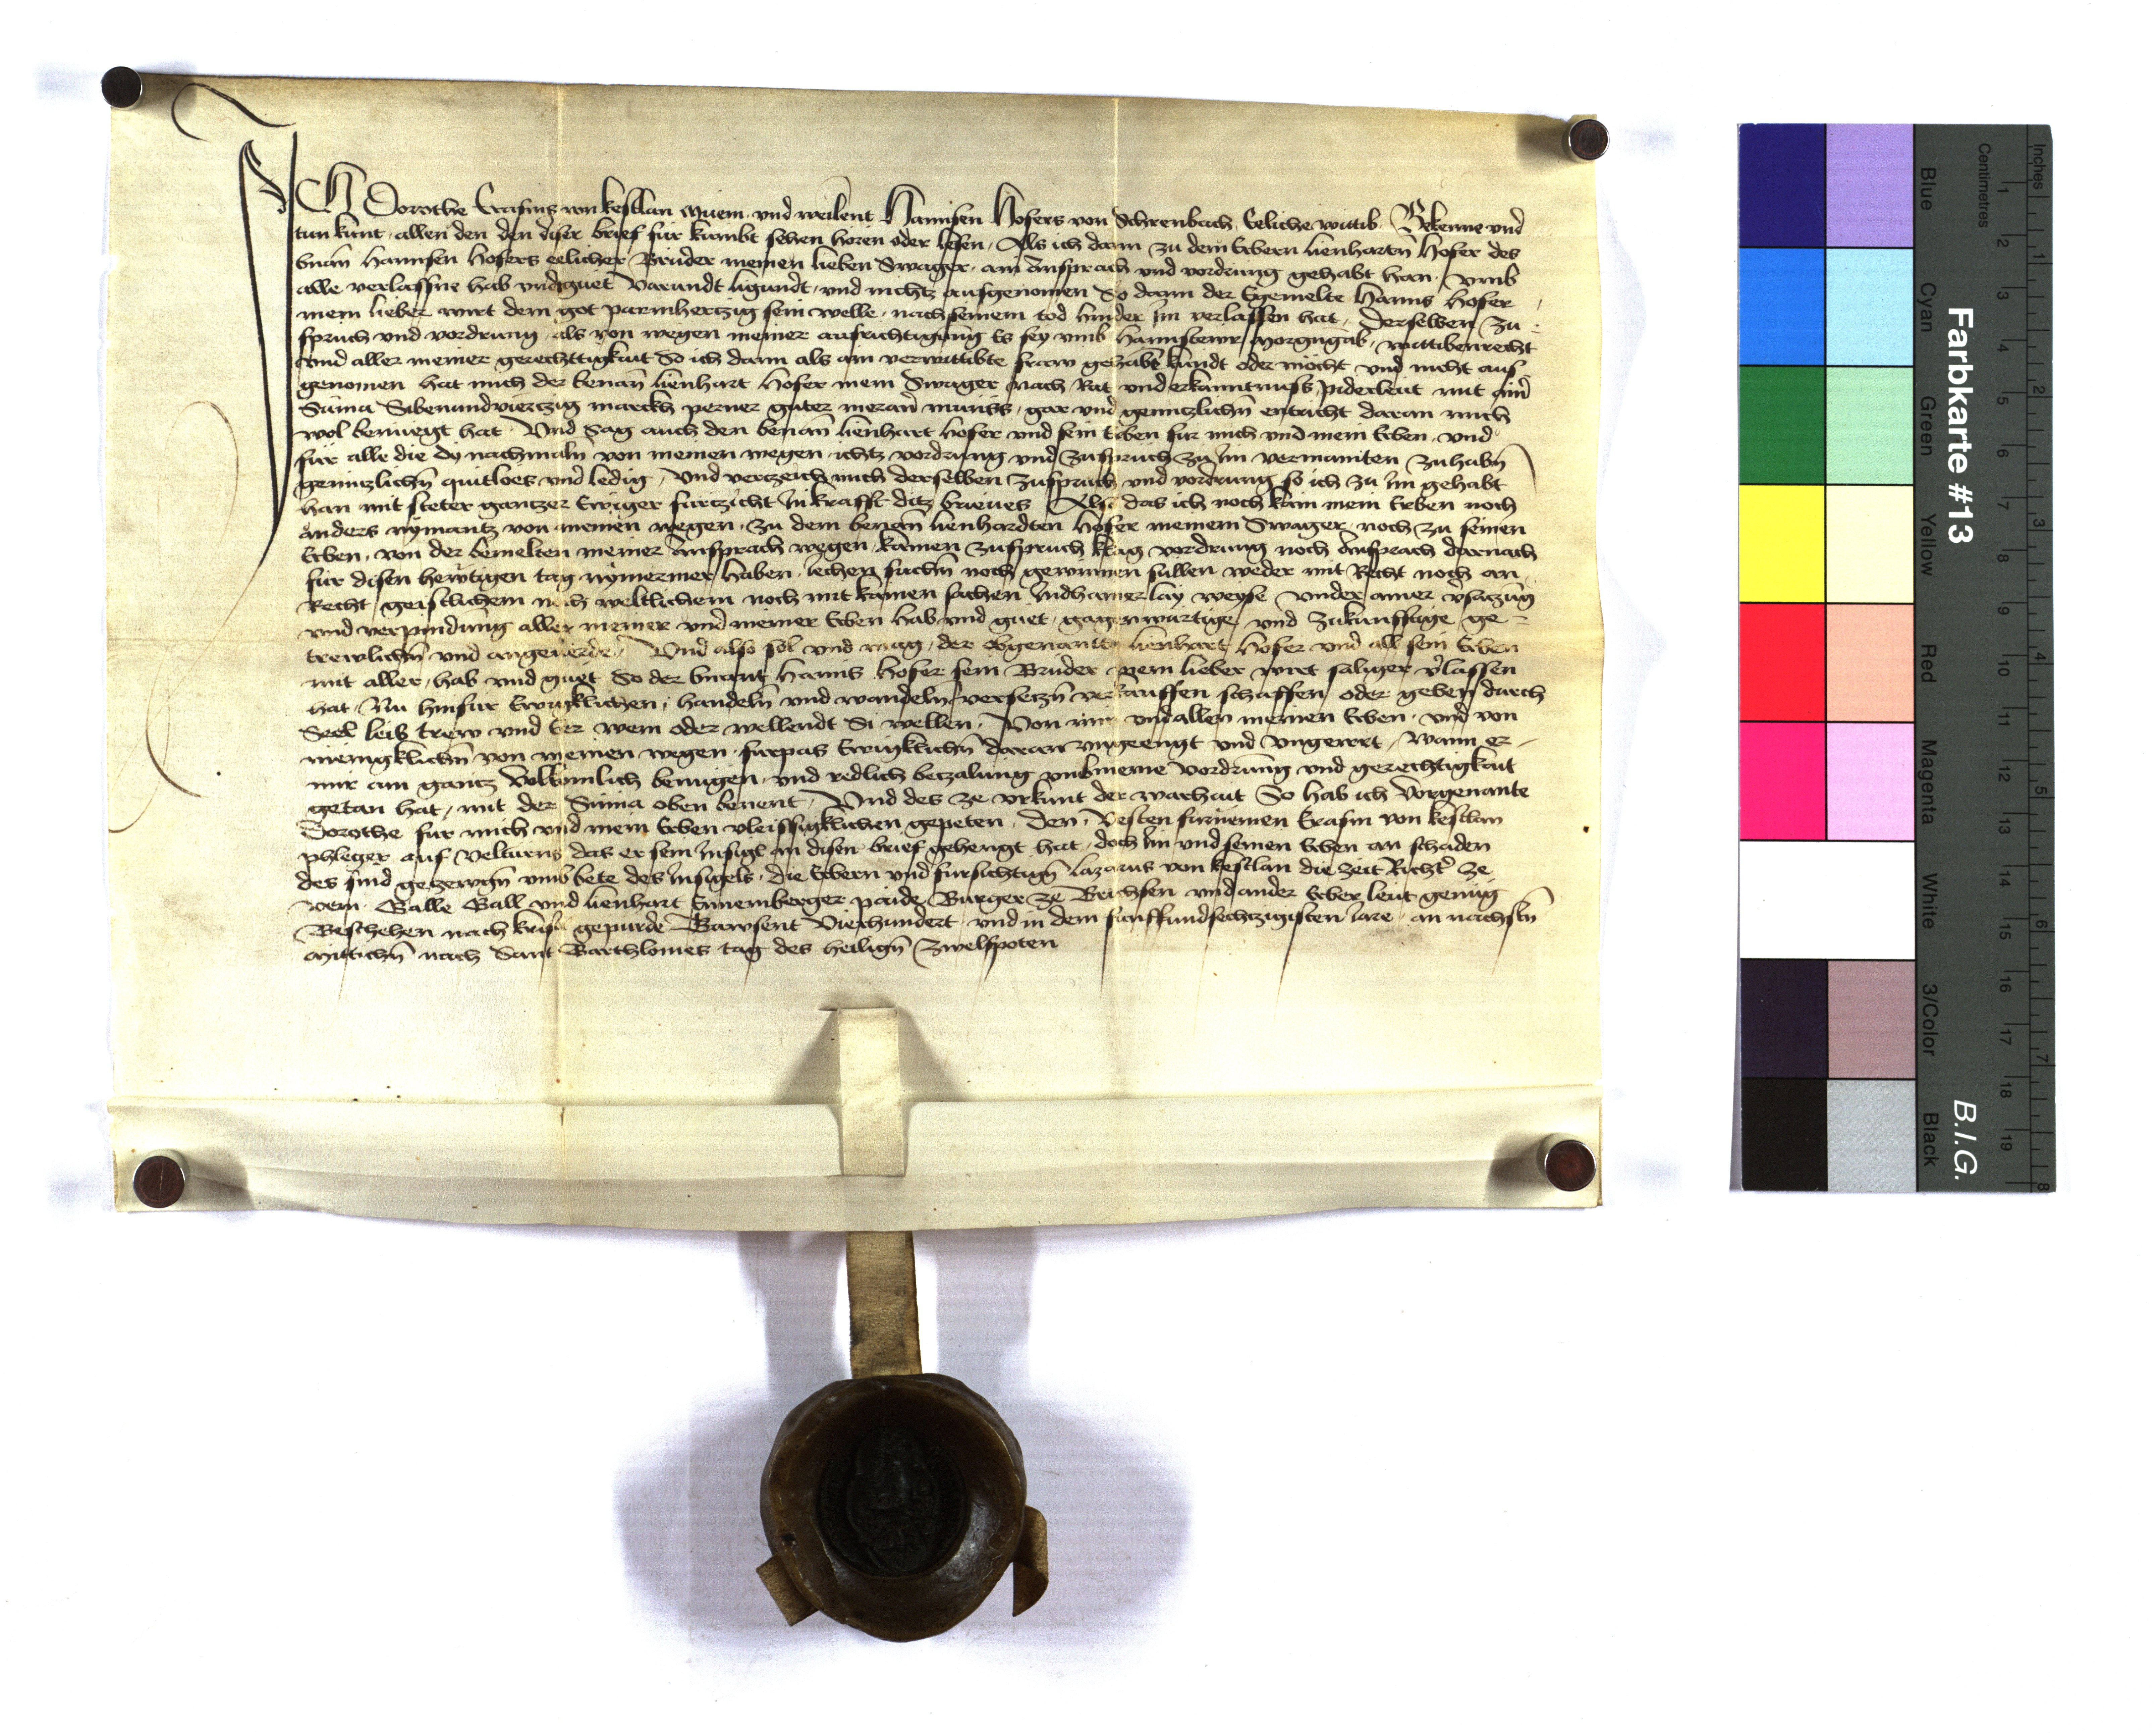 ICH Dorothe Erasms von kestlan Muem und weilent Hannsen Hofers von Schrenbach Eeliche wittib Bekenne und
tun kunt allen den den diser brief für kumbt sehen hören oder lesen Als ich dann zu dem Erbern lienhartn Hofer des
bnan Hannsen Hofers eelicher Bruder meinen lieben Swager ain Ansprach und vordrung gehabt han umb
alle verlassne hab und guet Varundt ligundt und nichtz aufgenomen So dann der Egemelte Hanns Hofer
mein lieber wirt dem got parmhertzig sein welle nach seinem tod hinder Im verlassen hat Derselben Zu
spruch und vordrung als von wegen meiner aufrichtigung Es sey umb Haimstewr Morgngab wittibenrecht
und aller meiner gerechttigkait So ich dann als ain verwittibte fraw gehabt kundt oder möcht und nicht aus
genomen hat mich der benan lienhart Hofer mein Swager nach Rat und erkanntnuss piderleut mit ainer
Suma Sibenundviertzig marckh perner guter meran müniss gar und genntzlichn entricht daran mich
wol benuegt hat Und Sag auch den benan lienhart Hofer und sein Erben für mich und mein Erben und
für alle die dy nachmaln von meinen wegen ichtz vordrung und Zuspruch zu Im vermainten Zuhabn
genntzlichn quitloes und ledig Und verczeich mich derselben Zuspruch und vordrung so ich zu Im gehabt
han mit steter gantzer Ewiger fürtzicht In krafft ditz brieues Also das ich noch kain mein Erben noch
anders nymantz von meinen wegen zu dem benan lienhardten Hofer meinem Swager noch zu seinen
Erben von der bemelten meiner Ansprach wegen kainen Zuspruch klag vordrung noch Ansprach darnach
für disen hewtigen tag nymermer haben suchn noch gewinnen sullen weder mit Recht noch an
Recht geistlichem noch weltlichem noch mit kainen sachen Indhainer lay weyse under ainer vsaczung
und verpindung aller meiner und meiner Erben hab und guet gagenwürtige und Zukunfftige ge
trewlichn und angeuerde Und also sol und mag der obgenante lienhart Hofer und all sein Erben
mit aller hab und guet So der bnant Hanns Hofer sein Bruder mein lieber wirt saliger vlassen
hat Nu hinfür Ewigklichen handeln und wandeln verseczn verkauffen schaffen oder geben durch
Seel leib trew und Eer wem oder wellendt Si wellen Von mir und allen meinen Erben und von
meingklichn von meinen wegen fürpas Ewigklichn daran ungeengt und Ungeirrt Wann er
mir ain gantz Volkumlich benugen und redlich beczalung umb meine Vordrung und gerechtigkait
getan hat mit der Suma oben benent Und des ze urkunt der warhait So hab ich Vorgenante
Dorothe für mich und mein Erben vleissigklichen gepeten Den Vesten fürnemen Erasm von kestlan
phleger auf Velturns das er sein Insigl an disen brief gehengt hat doch Im und seinen Erben an schaden
des sind geczewgn umb bete des Insigels die Erbern und fürsichtign Lazarus von kestlan die zeit Richter ze
Galle Gall und lienhart paide Burger ze Brichsen und ander Erber leut genug
Beschehen nach krist gepurde Tawsent Vierhundert und in dem funffundsechtzigisten Iare an nachstn
Mittichn nach Sant Barthlomes tag des heilign Zwelfpoten
Farbkarte #13
B.I.G.
Centimetres
Inches
Blue
Cyan
Green
Yellow
Red
Magenta
White
3/Color
Black
1 2 3 4 5 6 7 8 9 10 11 12 13 14 15 16 17 18 19
1 2 3 4 5 6 7 8